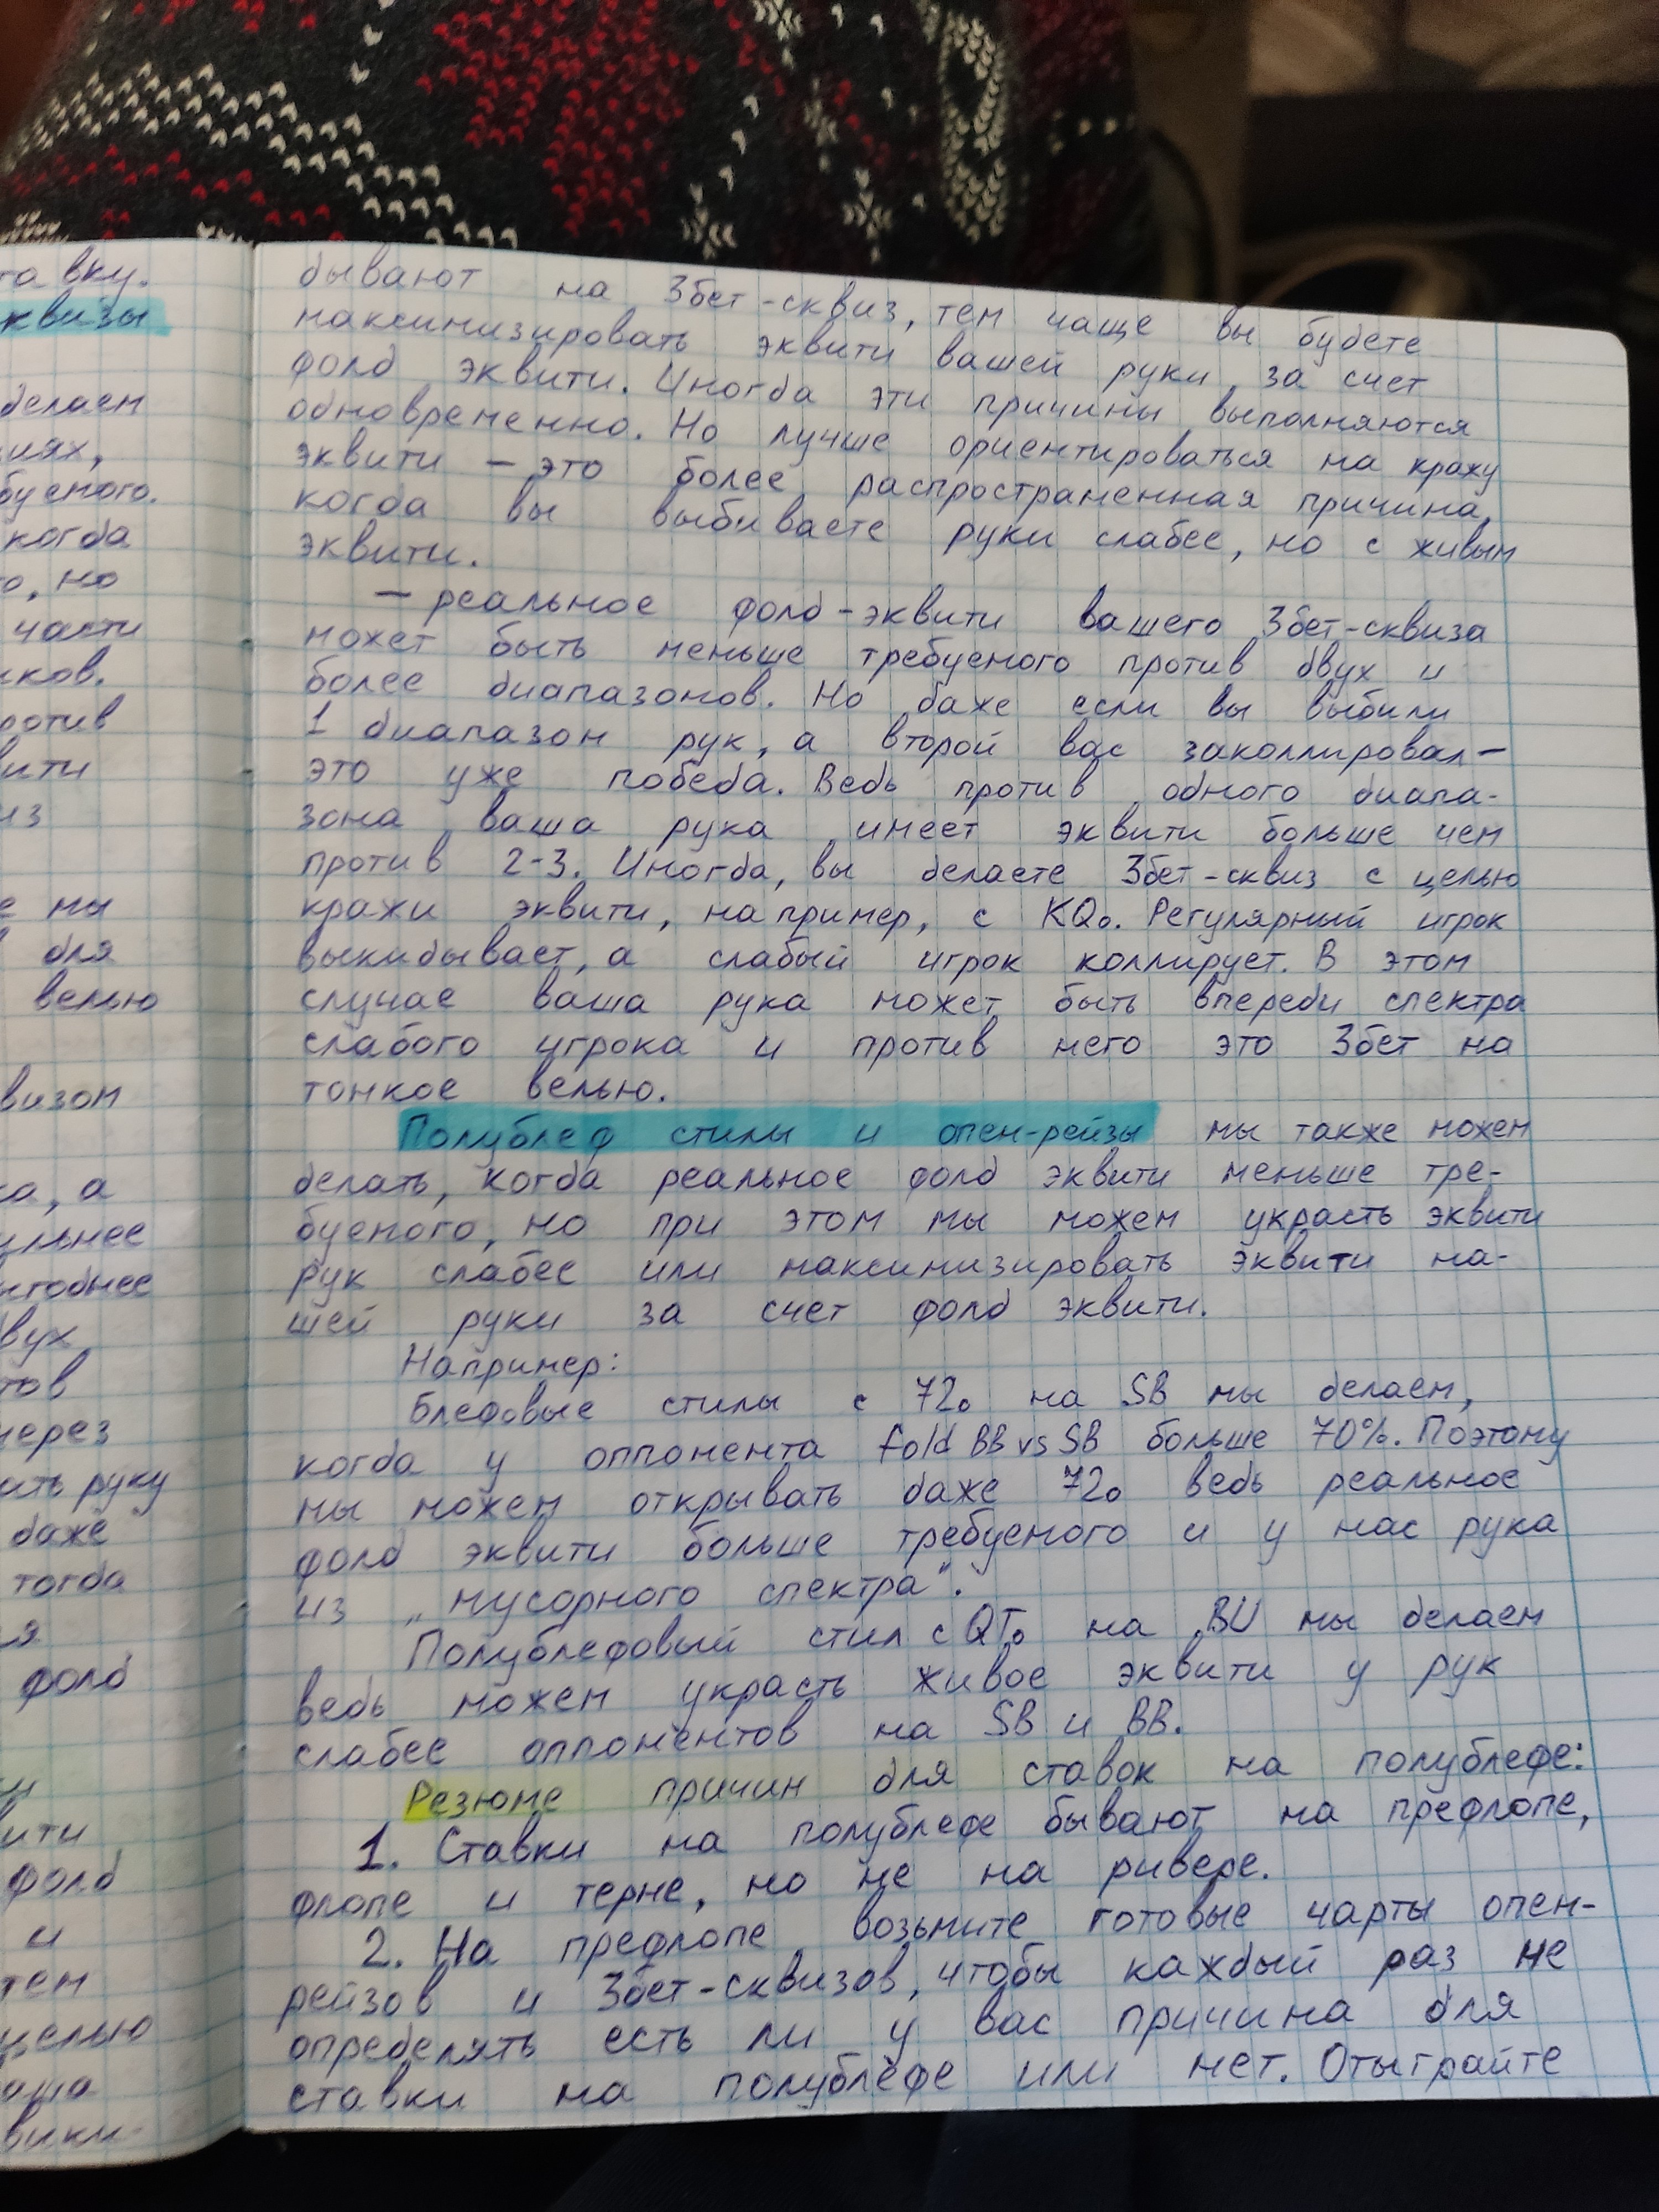 та вку.
квизы
делаем
иях,
буемого.
когда
о, но
части
иков.
ротив
ити
из
е мы
для
велью
визом
ка, а
ильнее
ыгоднее
вух
тов
через
ить руку
даже
тогда
ия
фолд
ити
фолд
и
тем
целью
аша
вики-
бывают на 3бет-сквиз, тем чаще вы будете
максимизировать эквити вашей руки за счет
фолд эквити. Иногда эти причины выполняются
одновременно. Но лучше ориентироваться на кражу
эквити - это более распространенная причина,
когда вы выбиваете руки слабее, но с живым
эквити.
- реальное фолд-эквити вашего 3бет-сквиза
может быть меньше требуемого против двух и
более диапазонов. Но даже если вы выбили
1 диапазон рук, а второй вас заколлировал -
это уже победа. Ведь против одного диапа-
зона ваша рука имеет эквити больше чем
против 2-3. Иногда, вы делаете 3бет-сквиз с целью
кражи эквити, например, с KQo. Регулярный игрок
выкидывает, а слабый игрок коллирует. В этом
случае ваша рука может быть впереди спектра
слабого игрока и против него это 3бет на
тонкое велью.
Полублеф стилы и опен-рейзы мы также можем
делать, когда реальное фолд эквити меньше тре-
буемого, но при этом мы можем украсть эквити
рук слабее или максимизировать эквити на-
шей руки за счет фолд эквити.
Например:
Блефовые стилы с 72o на SB мы делаем,
когда у оппонента fold BB vs SB больше 70%. Поэтому
мы можем открывать даже 72o ведь реальное
фолд эквити больше требуемого и у нас рука
из „мусорного спектра".
Полублефовый стил с QTo на BU мы делаем
ведь можем украсть живое эквити у рук
слабее оппонентов на SB и BB.
Резюме причин для ставок на полублефе:
1. Ставки на полублефе бывают на префлопе,
флопе и терне, но не на ривере.
2. На префлопе возьмите готовые чарты опен-
рейзов и 3бет-сквизов, чтобы каждый раз не
определять есть ли у вас причина для
ставки на полублефе или нет. Отыграйте